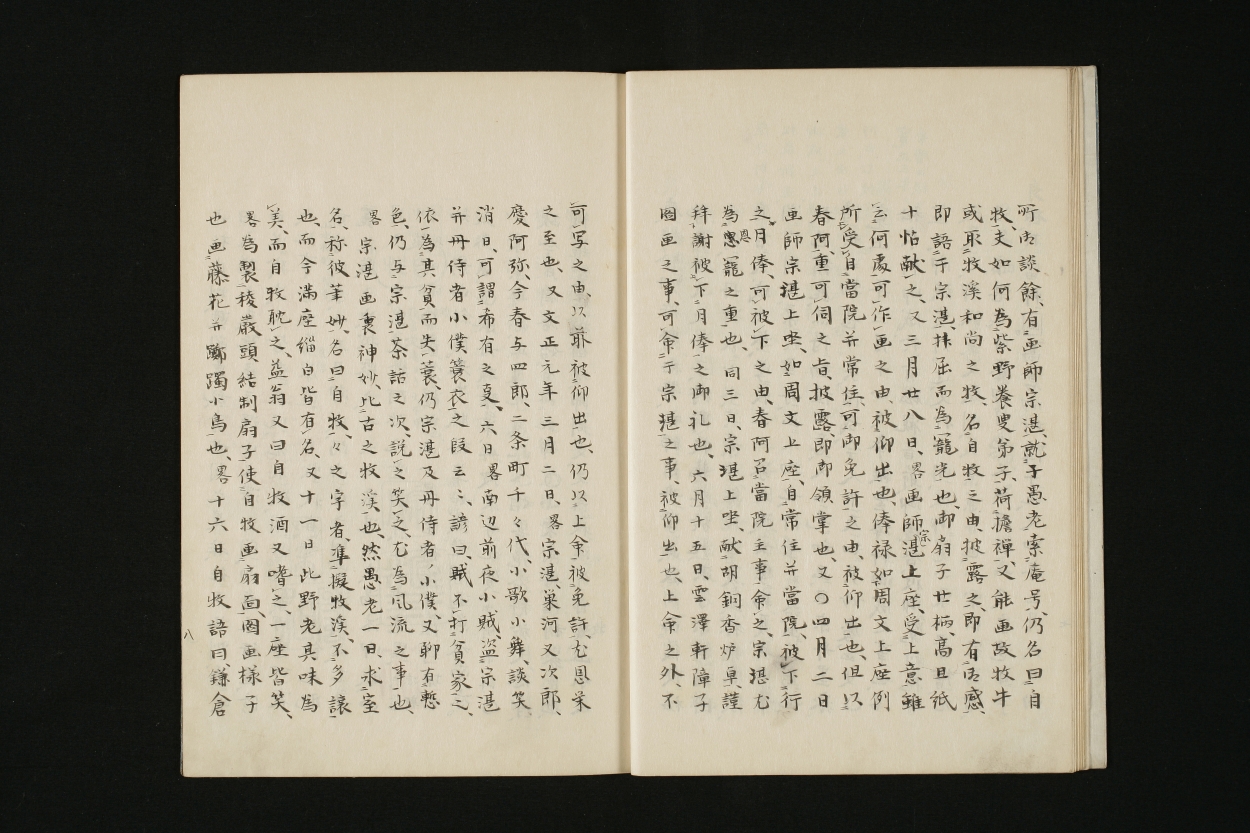 所御談餘、有画師宗湛、就于愚老索庵号、仍名曰自
牧、夫如何為紫野養叟弟子、荷擔禅、又能画故牧牛
或取牧溪和尚之牧、名自牧之由披露之、即有御感、
即語于宗湛、抹屈而為寵光也、御扇子廿柄、高且紙
十帖献之、又三月廿八日、畧画師湛宗上座、受上意雖
云何處可作画之由、被仰出也、俸禄如周文上座例
所受自當院并常住、可御免許之由、被仰出也、但以
春阿、重可伺之旨、披露、即御領掌也、又〇四月二日
画師宗湛上坐、如周文上座、自常住并當院、被下行
之月俸、可被下之由、春阿召當院主事命之、宗湛尤
為恩寵之重也、同三日、宗湛上坐、献胡銅香炉卓、謹
拜謝被下月俸之御礼也、六月十五日、雲澤軒障子
圖画之事、可命于宗湛之事、被仰出也、上命之外、不
可写之由、以前被仰出也、仍以上命被免許、尤恩栄
之至也、又文正元年三月二日、畧宗湛、巣河又次郎、
慶阿弥、今春与四郎、二条町千々代、小歌小舞、談笑
消日、可謂希有之事、六日畧南辺前夜小賊盗宗湛
并丹侍者小僕簑衣之段云々、諺曰、賊不打貧家之、
依為其貧而失簑、仍宗湛及丹侍者、小僕、又聊有慙
色、仍与宗湛茶話之次、説之笑之、尤為風流之事也、
畧宗湛画裏神妙、比古之牧溪也、然愚老一日、求室
名、称彼筆妙、名曰自牧、々之字者、準擬牧溪、不多譲
也、而今満座緇白皆有名、又十一日此野老其味為
美、而自牧耽之、益翁又曰自牧酒又嗜之、一座皆笑、
畧為製稜嚴頭結制扇子使自牧画扇面、圖画様子
也画藤花并躑躅小鳥也、畧十六日自牧語曰、鎌倉
八